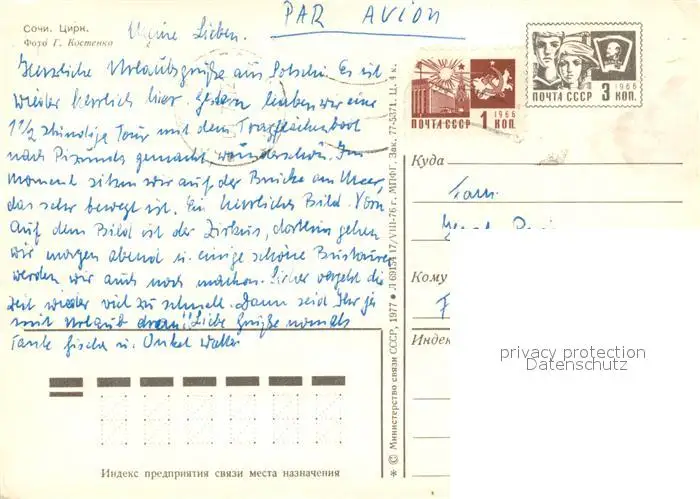 Сочи. Цирк.
Фото Г. Костенко
Meine Lieben.
PAR AVION
Herzliche Urlaubsgrüße aus Sotschi. Es ist
wieder herrlich hier. Gestern haben wir eine
1 1/2 stündige Tour mit dem Tragflächenboot
nach Pizunda gemacht wunderschön. Im
Moment sitzen wir auf der Brücke am Meer,
das sehr bewegt ist. Ein herrliches Bild. Vorn
auf dem Bild ist der Zirkus, dorthin gehen
wir morgen abend u. einige schöne Bustouren
werden wir auch noch machen. Sicher vergeht die
Zeit wieder viel zu schnell. Dann seid Ihr ja
mit Urlaub dran!! Liebe Grüße nomals
Tante Gischa u. Onkel Walter
Индекс предприятия связи места назначения
© Министерство связи СССР, 1977 • Л 69154 17/VIII-76 г. МПФГ. Зак. 77-5371. Ц. 4 к.
ПОЧТА СССР 1 КОП.
1966
ПОЧТА СССР 3 КОП.
1966
Куда
Fam.
Кому
Индекс
privacy protection
Datenschutz